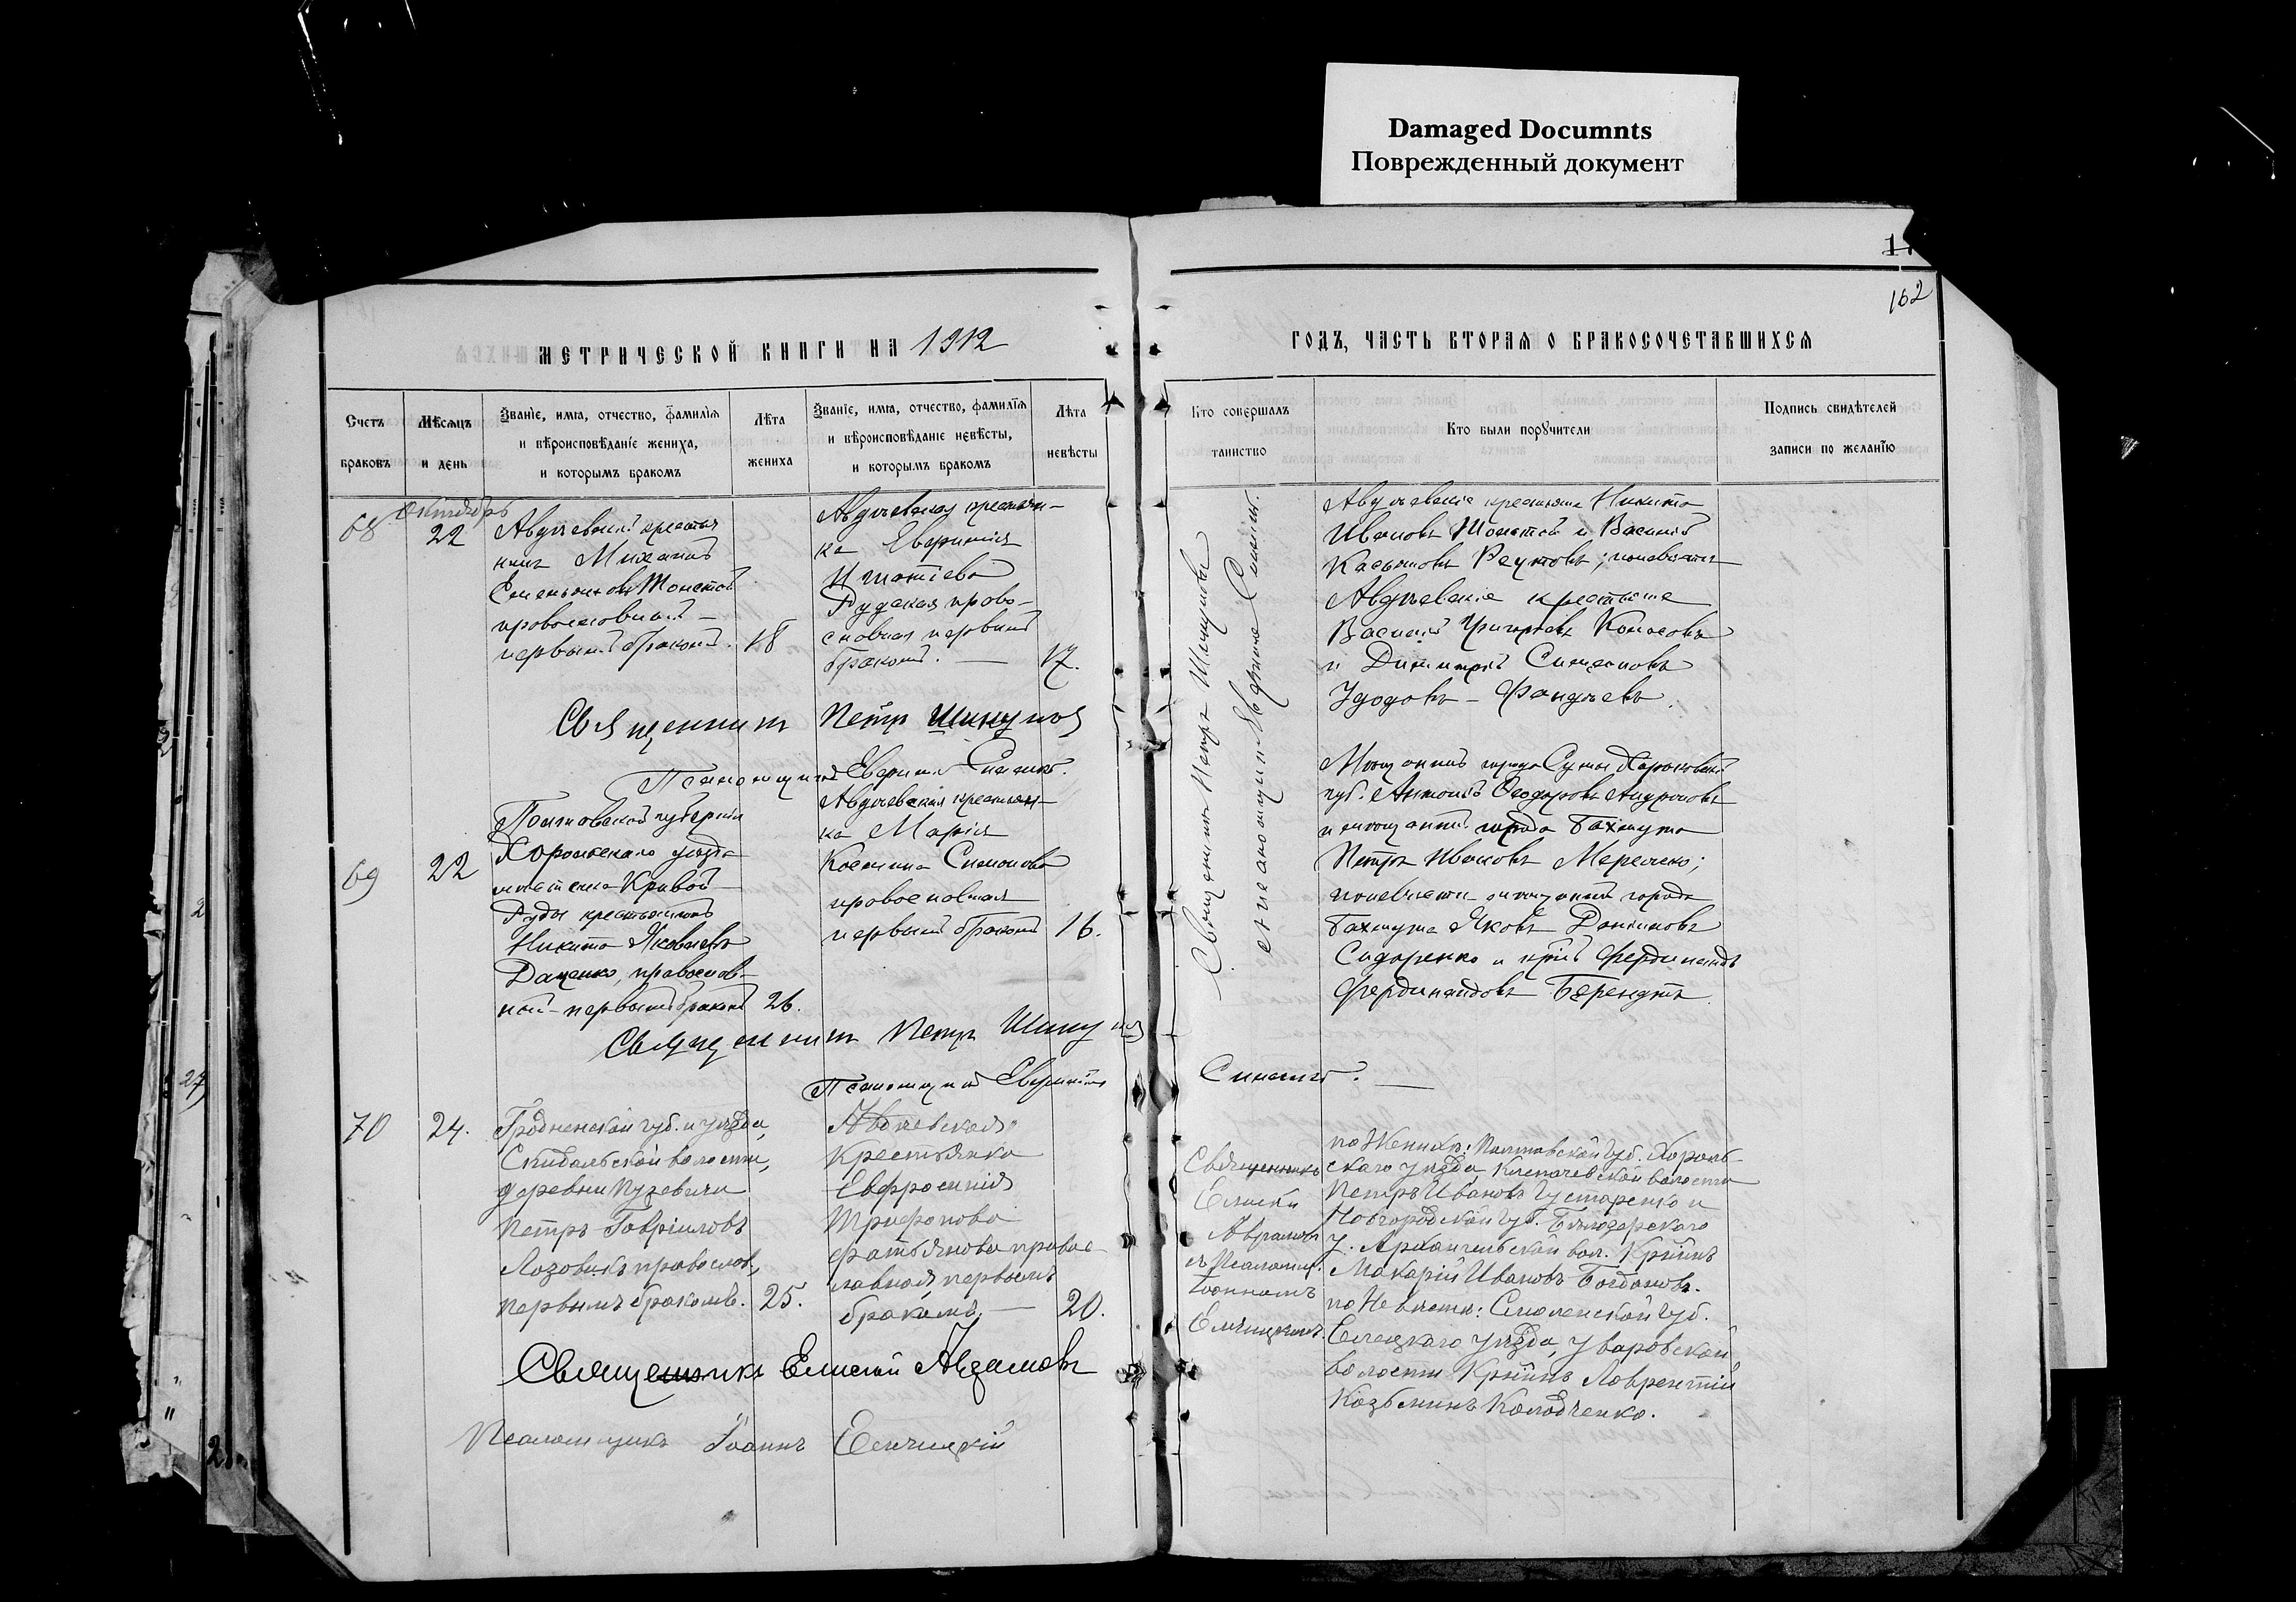 Damaged Documnts
Поврежденный документ
162
МЕТРИЧЕСКОЙ КНИГИ НА 1912
ГОДЪ, ЧАСТЬ ВТОРАЯ О БРАКОСОЧЕТАВШИХСЯ
Счетъ браковъ
Мѣсяцъ и день
Званіе, имя, отчество, фамилія
и вѣроисповѣданіе жениха,
и которымъ бракомъ
Лѣта жениха
Званіе, имя, отчество, фамилія
и вѣроисповѣданіе невѣсты,
и которымъ бракомъ
Лѣта невѣсты
Кто совершалъ
таинство
Кто были поручители
Подпись свидѣтелей
записи по желанію
68
Октябрь
22
Авдѣевскій крестья
нинъ Михаилъ
Семеновъ Толстой
православный
первымъ бракомъ. 18
Авдѣевская крестьян-
ка Евфимія
Игнатіева
Рудская право-
славная первымъ
бракомъ. — 17.
Священникъ Петръ Шикунова
Авдѣевскіе крестьяне Никита
Ивановъ Толстой и Василій
Касьяновъ Реутовъ; по невѣсте
Авдѣевскіе крестьяне
Василій Григорьевъ Колосовъ
и Димитрій Симеоновъ
Удодовъ - Фандѣевъ.
Псаломщикъ
69
22
Полтавской губерніи
Хорольскаго уѣзда
местечка Кривой
Руды крестьянинъ
Никита Яковлевъ
Даценко, православ-
ный - первымъ бракомъ 26.
Авдѣевская крестьян-
ка Марія
Косьмина Симонова
православная
первымъ бракомъ 16.
Священникъ Петръ
Псаломщикъ
Мѣщанинъ города Сумъ Харьковской
губ. Антоній Ѳеодоровъ
и мѣщанинъ города Бахмута
Петръ Ивановъ
по невѣсти мѣщанинъ города
Бахмута Яковъ Даниловъ
Сидоренко и кр-нъ Фердинандъ
Фердинандовъ Берендтъ.
70
24.
Гродненской губ. и уѣзда,
Скидельской волости,
деревни Пузевичи
Петръ Гавріиловъ
Лозовикъ православ.,
первымъ бракомъ. 25.
Авдѣевская
крестьянка
Евфросинія
Трифонова
Фатьянова правос-
лавная первымъ
бракомъ, — 20.
Священникъ
Елисей
и Псаломщ.
Іоанномъ
по Женихѣ: Полтавской губ. Хороль-
скаго уѣзда, Клепачевской волости
Петръ Ивановъ Густаренко и
Новгородской губ. Бѣлозерскаго
у. Архангельской вол. Кр-нинъ
Макарій Ивановъ Богдановъ.
по Невѣсти: Смоленской губ.
уѣзда, Уваровской
волости Кр-нинъ Лаврентій
Козьминъ Колодченко.
Священникъ Елисей
Псаломщикъ Іоаннъ